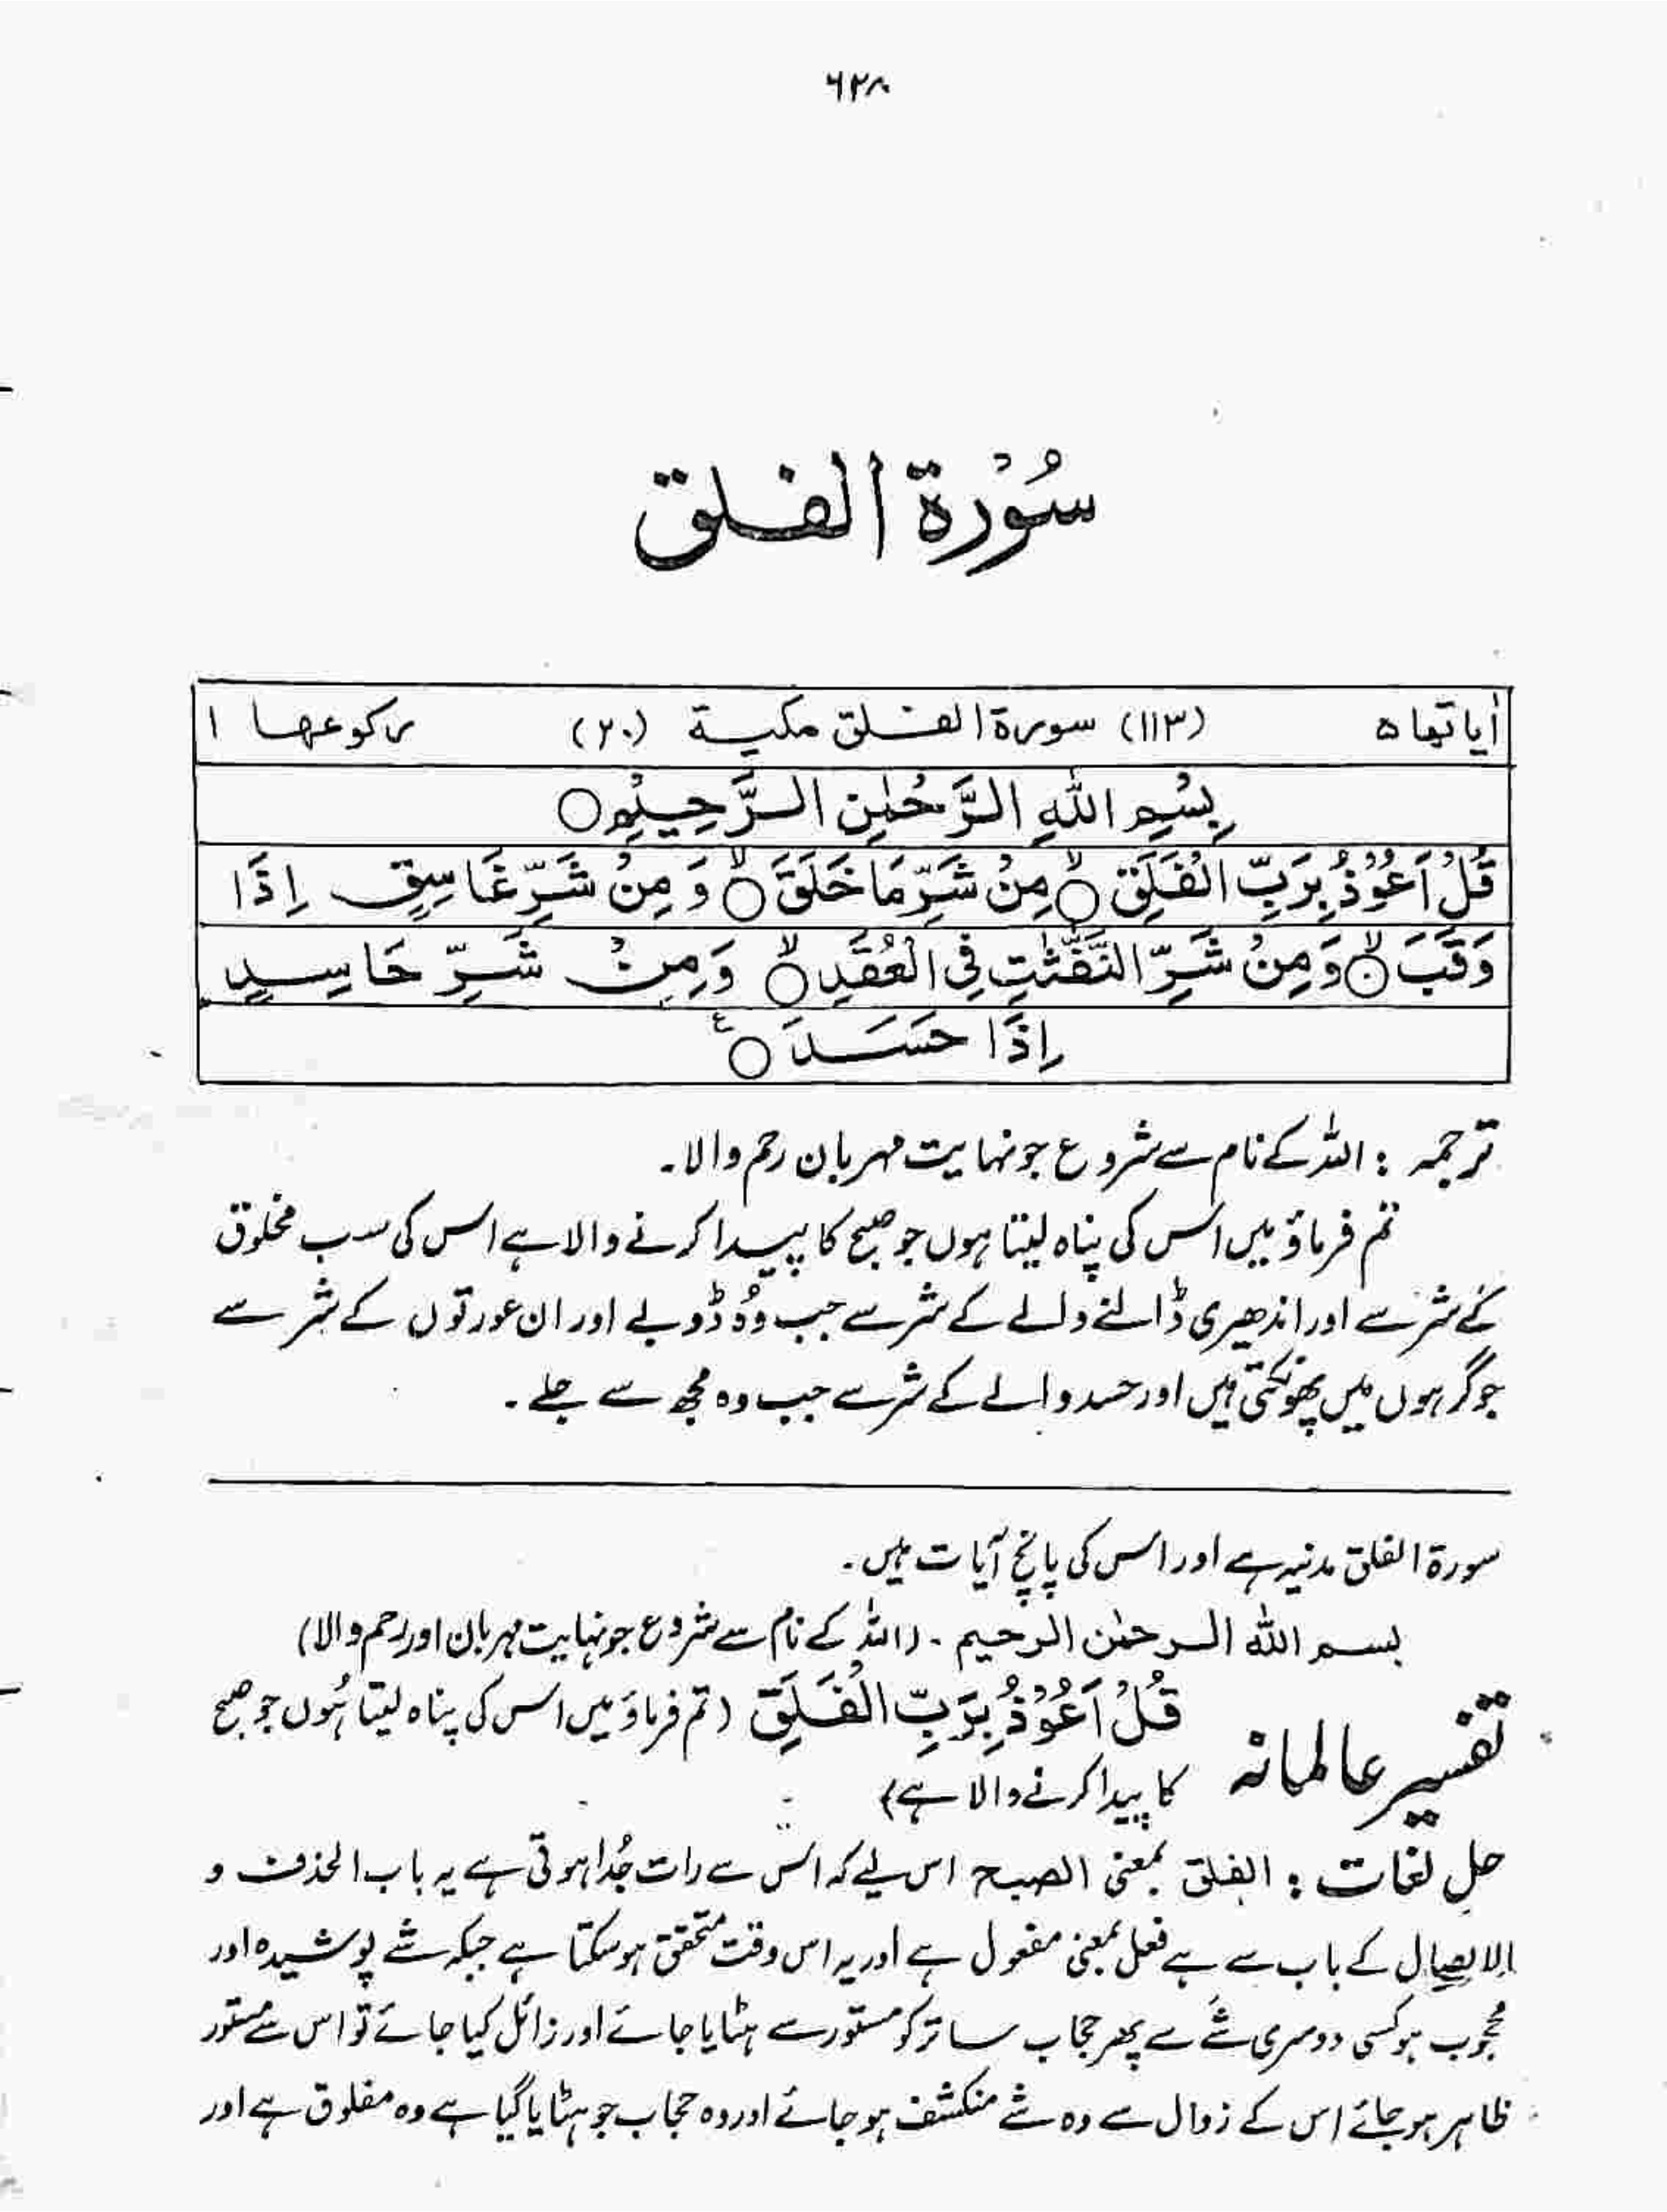 ۶۲۸
سُوْرة الفلق
اٰیاتھا ۵ (۱۱۳) سورۃ الفلق مکیۃ (۲۰) رکوعھا ۱
بِسْمِ اللّٰهِ الرَّحْمٰنِ الرَّحِيْمِ ○
قُلْ اَعُوْذُ بِرَبِّ الْفَلَقِ ۙ○ مِنْ شَرِّ مَا خَلَقَ ۙ○ وَ مِنْ شَرِّ غَاسِقٍ اِذَا
وَقَبَ ۙ○ وَ مِنْ شَرِّ النَّفّٰثٰتِ فِی الْعُقَدِ ۙ○ وَ مِنْ شَرِّ حَاسِدٍ
اِذَا حَسَدَ ○ ع
ترجمہ : اللہ کے نام سے شروع جو نہایت مہربان رحم والا۔
تم فرماؤ میں اس کی پناہ لیتا ہوں جو صبح کا پیدا کرنے والا ہے اس کی سب مخلوق
کے شر سے اور اندھیری ڈالنے والے کے شر سے جب وُہ ڈوبے اور ان عورتوں کے شر سے
جو گرہوں میں پھونکتی ہیں اور حسد والے کے شر سے جب وہ مجھ سے جلے ۔
سورۃ الفلق مدنیہ ہے اور اس کی پانچ آیات ہیں ۔
بسم اللہ الرحمٰن الرحیم ۔ (اللہ کے نام سے شروع جو نہایت مہربان اور رحم والا)
تفسیر عالمانہ قُلْ اَعُوْذُ بِرَبِّ الْفَلَقِ (تم فرماؤ میں اس کی پناہ لیتا ہُوں جو صبح
کا پیدا کرنے والا ہے)
حل لغات : الفلق بمعنی الصبح اس لیے کہ اس سے رات جُدا ہوتی ہے یہ باب الحذف و
الایصال کے باب سے ہے فعل بمعنی مفعول ہے اور یہ اس وقت متحقق ہو سکتا ہے جبکہ شے پوشیدہ اور
محجوب ہو کسی دوسری شے سے پھر حجاب ساتر کو مستور سے ہٹایا جائے اور زائل کیا جائے تو اس سے مستور
ظاہر ہو جائے اس کے زوال سے وہ شے منکشف ہو جائے اور وہ حجاب جو ہٹایا گیا ہے وہ مفلوق ہے اور